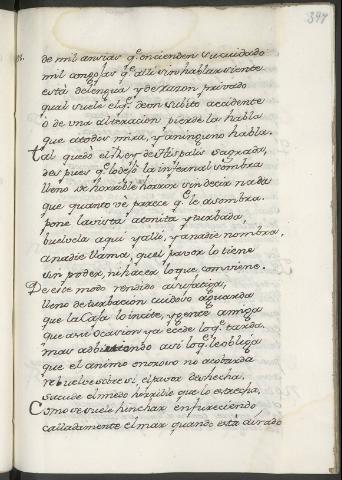 397
de mil ansias q.e encienden su cuidado
mil congojas q.e alli sin hablar siente
está de lengua y de razon privado
qual suele el q.e de un subito accidente
ò de una alteracion pierde la habla
que a todos mira, y a ninguno habla.
Tal quedò el Rey de Hispalis sagrada,
despues q.e lo dejò la infernal sombra
lleno de horrible horror sin decir nada
que quanto vè parece q.e le asombra.
pone la vista atonita y turbada,
buelvela aqui y alli, y a nadie nombra,
a nadie llama, que el pavor lo tiene
sin poder, ni hacer lo que conviene.
De este modo rendido a su fatiga,
lleno de turbacion cuidoso aguarda
que la Casa lo incite, y gente amiga
que a su ocasion ya ecede lo q.e tarda,
mas advirtiendo asi lo q.e le obliga
que el animo onoroso no acobarda
rebuelve sobre si, el pasta deshecha,
sacude el miedo horrible que lo estrecha,
Como se suele hinchar enfureciendo,
calladamente el mar quando está airado